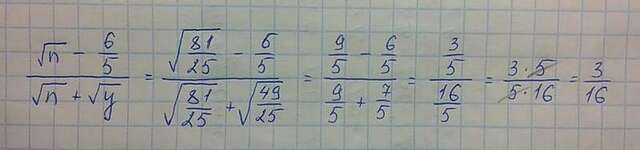 (√n - 6/5)/(√n + √y) = (√(81/25) - 6/5)/(√(81/25) + √(49/25)) = (9/5 - 6/5)/(9/5 + 7/5) = (3/5)/(16/5) = (3·5)/(5·16) = 3/16